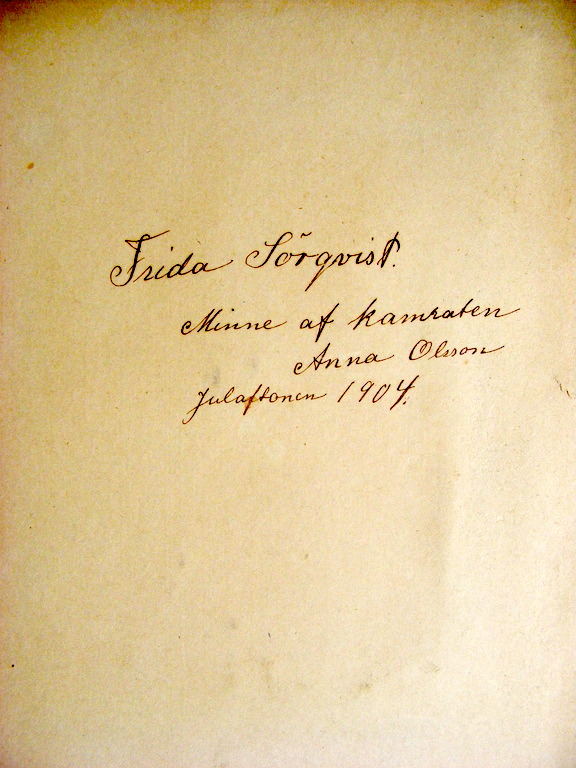 Frida Sörqvist.
Minne af kamraten
Anna Olsson
Julaftonen 1904.